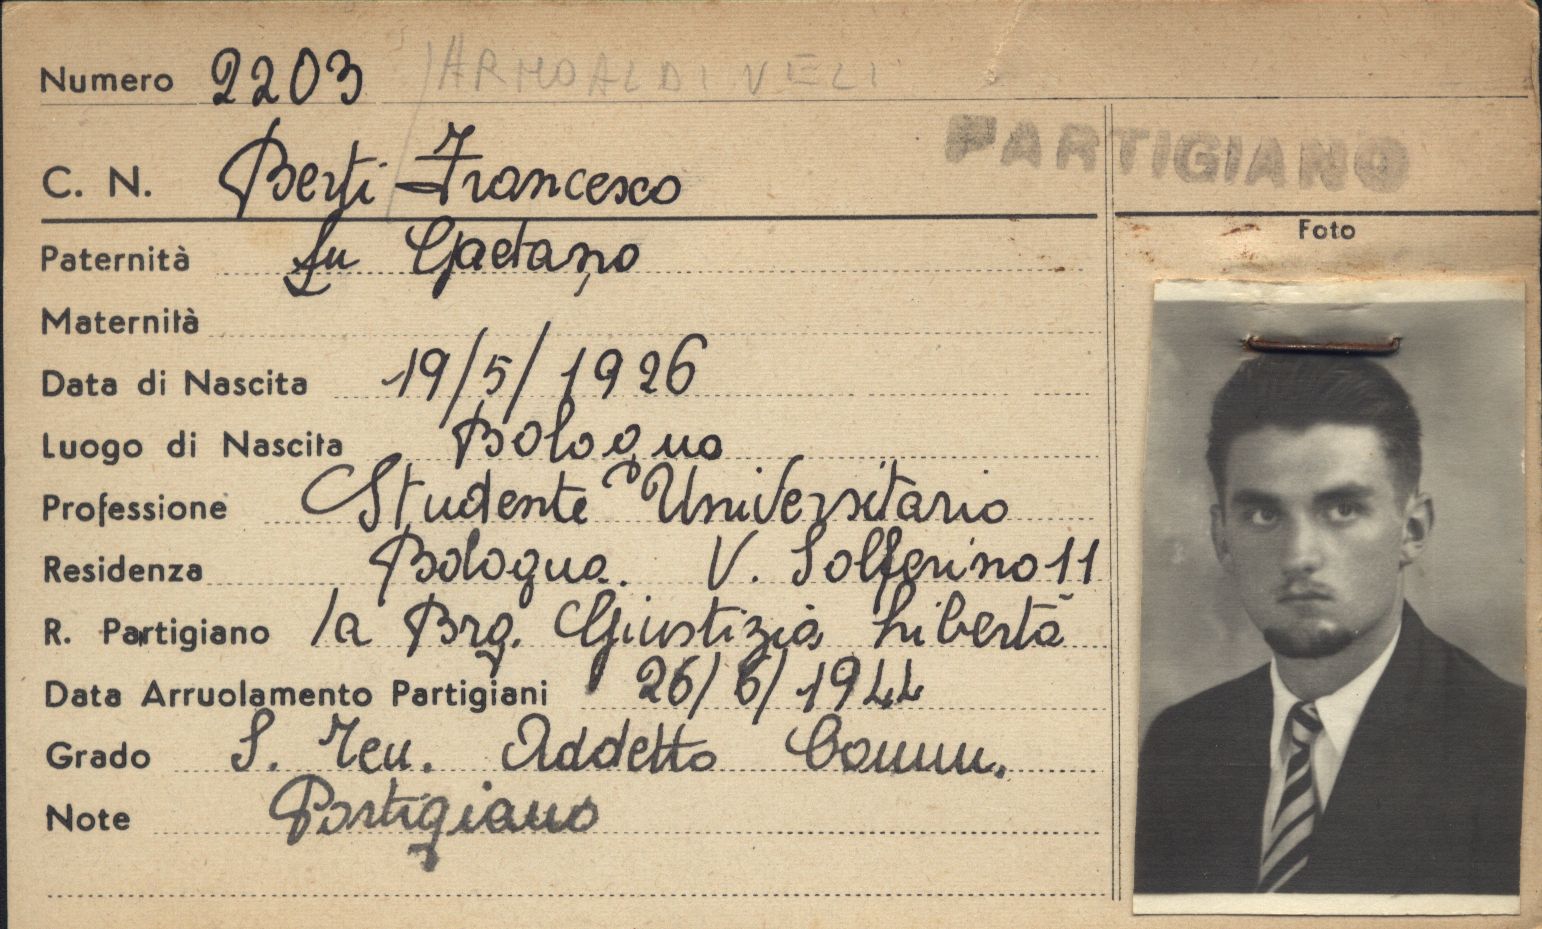 Numero 2203 / ARMOALDI VELI
C. N. Berti Francesco
PARTIGIANO
Foto
Paternità fu Gaetano
Maternità
Data di Nascita 19/5/1926
Luogo di Nascita Bologna
Professione Studente Universitario
Residenza Bologna. V. Solferino 11
R. Partigiano 1a Brg. Giustizia Libertà
Data Arruolamento Partigiani 26/6/1944
Grado S. Ten. Addetto Comm.
Note Partigiano